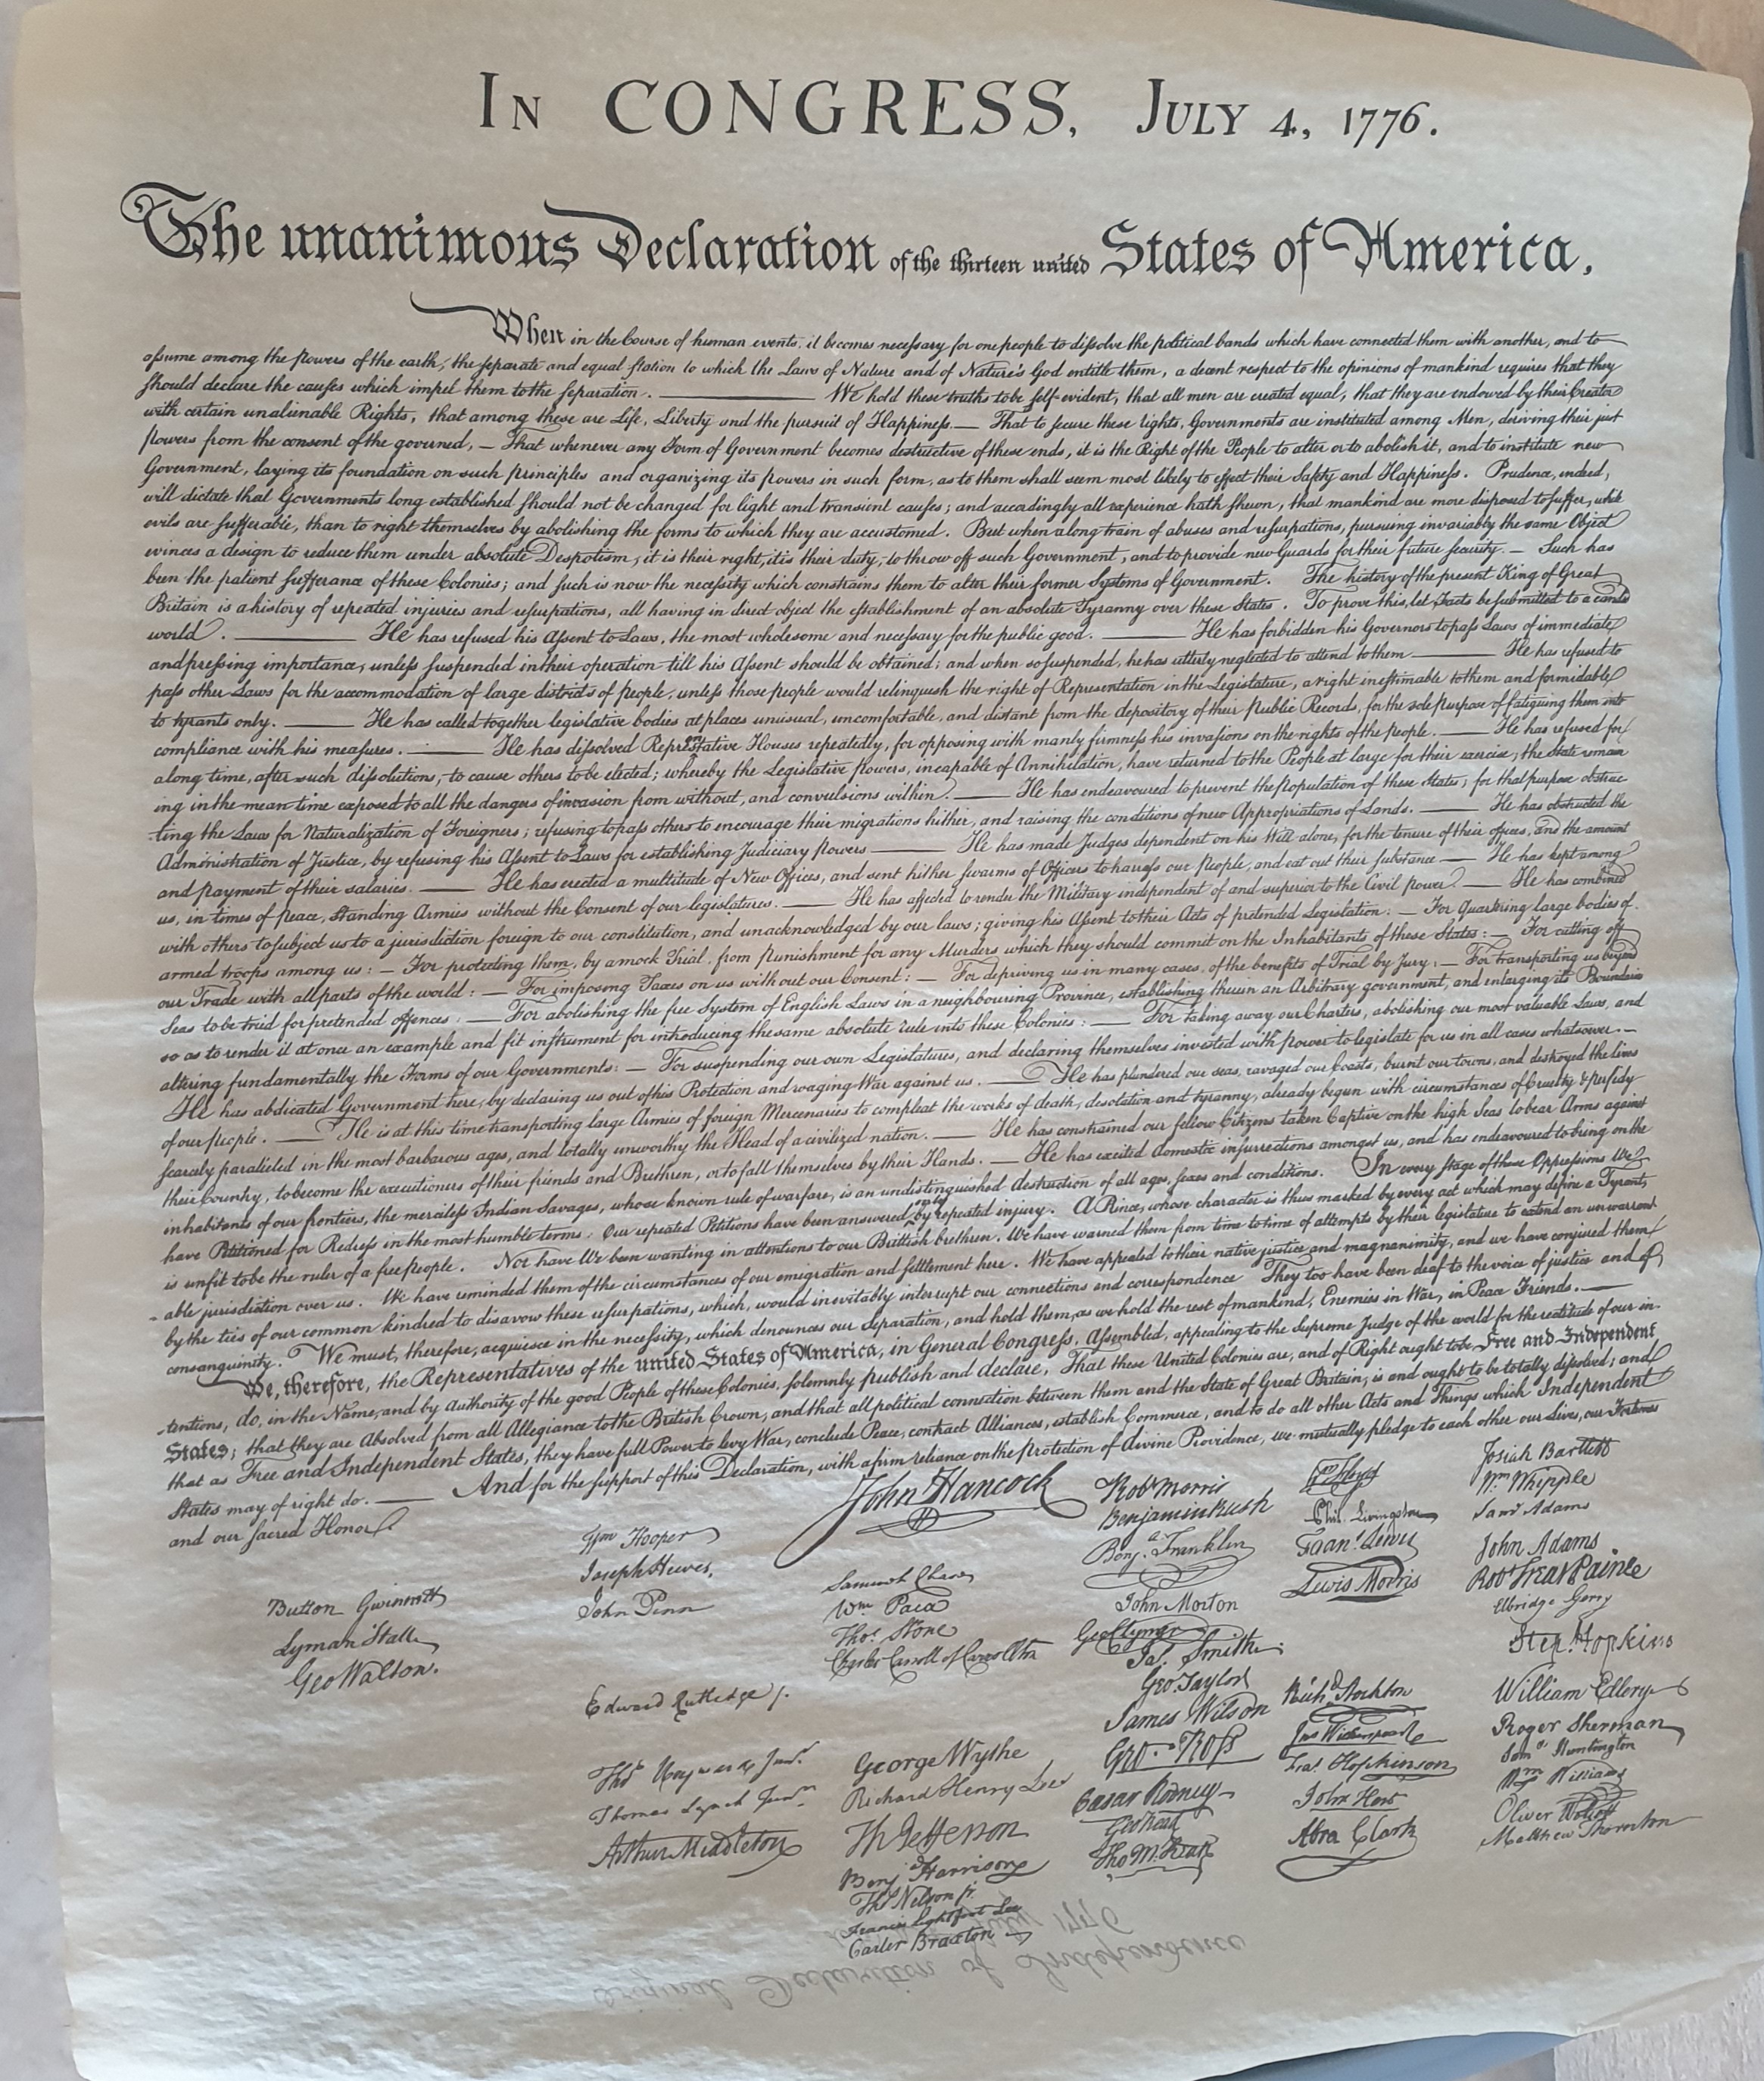 In CONGRESS, July 4, 1776.
The unanimous Declaration of the thirteen united States of America,
When in the Course of human events, it becomes necessary for one people to dissolve the political bands which have connected them with another, and to
assume among the powers of the earth, the separate and equal station to which the Laws of Nature and of Nature's God entitle them, a decent respect to the opinions of mankind requires that they
should declare the causes which impel them to the separation. ——— We hold these truths to be self-evident, that all men are created equal, that they are endowed by their Creator
with certain unalienable Rights, that among these are Life, Liberty and the pursuit of Happiness. — That to secure these rights, Governments are instituted among Men, deriving their just
powers from the consent of the governed, — That whenever any Form of Government becomes destructive of these ends, it is the Right of the People to alter or to abolish it, and to institute new
Government, laying its foundation on such principles and organizing its powers in such form, as to them shall seem most likely to effect their Safety and Happiness. Prudence, indeed,
will dictate that Governments long established should not be changed for light and transient causes; and accordingly all experience hath shewn, that mankind are more disposed to suffer, while
evils are sufferable, than to right themselves by abolishing the forms to which they are accustomed. But when a long train of abuses and usurpations, pursuing invariably the same Object
evinces a design to reduce them under absolute Despotism, it is their right, it is their duty, to throw off such Government, and to provide new Guards for their future security. — Such has
been the patient sufferance of these Colonies; and such is now the necessity which constrains them to alter their former Systems of Government. The history of the present King of Great
Britain is a history of repeated injuries and usurpations, all having in direct object the establishment of an absolute Tyranny over these States. To prove this, let Facts be submitted to a candid
world. ——— He has refused his Assent to Laws, the most wholesome and necessary for the public good. ——— He has forbidden his Governors to pass Laws of immediate
and pressing importance, unless suspended in their operation till his Assent should be obtained; and when so suspended, he has utterly neglected to attend to them ——— He has refused to
pass other Laws for the accommodation of large districts of people, unless those people would relinquish the right of Representation in the Legislature, a right inestimable to them and formidable
to tyrants only. ——— He has called together legislative bodies at places unusual, uncomfortable, and distant from the depository of their Public Records, for the sole purpose of fatiguing them into
compliance with his measures. ——— He has dissolved Representative Houses repeatedly, for opposing with manly firmness his invasions on the rights of the people. ——— He has refused for
a long time, after such dissolutions, to cause others to be elected; whereby the Legislative powers, incapable of Annihilation, have returned to the People at large for their exercise; the State remain
ing in the mean time exposed to all the dangers of invasion from without, and convulsions within. ——— He has endeavoured to prevent the population of these States; for that purpose obstruc
-ting the Laws for Naturalization of Foreigners; refusing to pass others to encourage their migrations hither, and raising the conditions of new Appropriations of Lands. ——— He has obstructed the
Administration of Justice, by refusing his Assent to Laws for establishing Judiciary powers ——— He has made Judges dependent on his Will alone, for the tenure of their offices, and the amount
and payment of their salaries. ——— He has erected a multitude of New Offices, and sent hither swarms of Officers to harrass our people, and eat out their substance — He has kept among
us, in times of peace, Standing Armies without the Consent of our legislatures. ——— He has affected to render the Military independent of and superior to the Civil power. — He has combined
with others to subject us to a jurisdiction foreign to our constitution, and unacknowledged by our laws; giving his Assent to their Acts of pretended Legislation: — For Quartering large bodies of
armed troops among us: — For protecting them, by a mock Trial, from punishment for any Murders which they should commit on the Inhabitants of these States: — For cutting off
our Trade with all parts of the world: — For imposing Taxes on us without our Consent: — For depriving us in many cases, of the benefits of Trial by Jury: — For transporting us beyond
Seas to be tried for pretended offences. — For abolishing the free System of English Laws in a neighbouring Province, establishing therein an Arbitrary government, and enlarging its Boundaries
so as to render it at once an example and fit instrument for introducing the same absolute rule into these Colonies: — For taking away our Charters, abolishing our most valuable Laws, and
altering fundamentally the Forms of our Governments: — For suspending our own Legislatures, and declaring themselves invested with power to legislate for us in all cases whatsoever. —
He has abdicated Government here, by declaring us out of his Protection and waging War against us. — He has plundered our seas, ravaged our Coasts, burnt our towns, and destroyed the lives
of our people. — He is at this time transporting large Armies of foreign Mercenaries to compleat the works of death, desolation and tyranny, already begun with circumstances of Cruelty & perfidy
scarcely paralleled in the most barbarous ages, and totally unworthy the Head of a civilized nation. — He has constrained our fellow Citizens taken Captive on the high Seas to bear Arms against
their Country, to become the executioners of their friends and Brethren, or to fall themselves by their Hands. — He has excited domestic insurrections amongst us, and has endeavoured to bring on the
inhabitants of our frontiers, the merciless Indian Savages, whose known rule of warfare, is an undistinguished destruction of all ages, sexes and conditions. In every stage of these Oppressions We
have Petitioned for Redress in the most humble terms: Our repeated Petitions have been answered only by repeated injury. A Prince, whose character is thus marked by every act which may define a Tyrant,
is unfit to be the ruler of a free people. Nor have We been wanting in attentions to our Brittish brethren. We have warned them from time to time of attempts by their legislature to extend an unwarrant
-able jurisdiction over us. We have reminded them of the circumstances of our emigration and settlement here. We have appealed to their native justice and magnanimity, and we have conjured them
by the ties of our common kindred to disavow these usurpations, which, would inevitably interrupt our connections and correspondence They too have been deaf to the voice of justice and of
consanguinity. We must, therefore, acquiesce in the necessity, which denounces our Separation, and hold them, as we hold the rest of mankind, Enemies in War, in Peace Friends. —
We, therefore, the Representatives of the united States of America, in General Congress, Assembled, appealing to the Supreme Judge of the world for the rectitude of our in-
-tentions, do, in the Name, and by Authority of the good People of these Colonies, solemnly publish and declare, That these United Colonies are, and of Right ought to be Free and Independent
States; that they are Absolved from all Allegiance to the British Crown, and that all political connection between them and the State of Great Britain, is and ought to be totally dissolved; and
that as Free and Independent States, they have full Power to levy War, conclude Peace, contract Alliances, establish Commerce, and to do all other Acts and Things which Independent
States may of right do. ——— And for the support of this Declaration, with a firm reliance on the protection of divine Providence, we mutually pledge to each other our Lives, our Fortunes
and our sacred Honor
Button Gwinnett
Lyman Hall
Geo Walton.
Wm Hooper
Joseph Hewes,
John Penn
Edward Rutledge /.
Thos Heyward Junr.
Thomas Lynch Junr.
Arthur Middleton
John Hancock
Samuel Chase
Wm Paca
Thos. Stone
Charles Carroll of Carrollton
George Wythe
Richard Henry Lee
Th Jefferson
Benj Harrison
Thos Nelson jr.
Francis Lightfoot Lee
Carter Braxton
Robt Morris
Benjamin Rush
Benj. Franklin
John Morton
Geo Clymer
Jas. Smith.
Geo. Taylor
James Wilson
Geo. Ross
Caesar Rodney
Geo Read
Tho M:Kean
Wm Floyd
Phil. Livingston
Frans. Lewis
Lewis Morris
Richd. Stockton
Jno Witherspoon
Fras. Hopkinson
John Hart
Abra Clark
Josiah Bartlett
Wm: Whipple
Saml Adams
John Adams
Robt Treat Paine
Elbridge Gerry
Step. Hopkins
William Ellery
Roger Sherman
Saml. Huntington
Wm Williams
Oliver Wolcott
Matthew Thornton
Original Declaration of Independence
July 1776